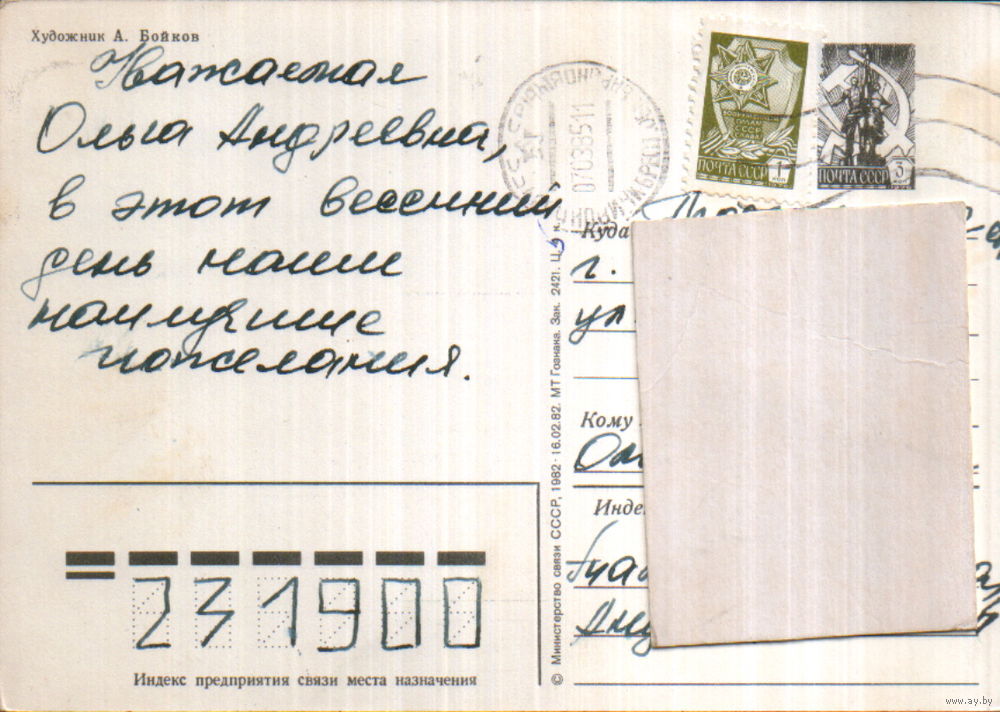 Художник А. Бойков
Уважаемая
Ольга Андреевна,
в этот весенний
день наши
наилучшие
пожелания.
070385 11
ВООРУЖЕННЫМ
СИЛАМ
СССР
СЛАВА
ПОЧТА СССР 1 КОП
ПОЧТА СССР 3
Куда
г.
ул
Кому
Инде
Анд
© Министерство связи СССР, 1982 · 16.02.82. МТ Гознака. Зак. 2421. Ц. 3 к.
231900
Индекс предприятия связи места назначения
www.ay.by